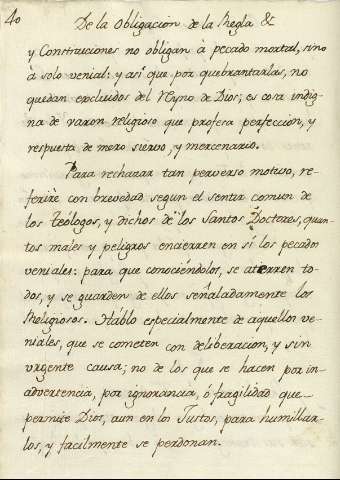 40
De la Obligacion de la Regla &
y Constituciones no obligan à pecado mortal, sino
à solo venial: y asi que por quebrantarlas, no
quedan excluidos del Reyno de Dios; es cosa indig
na de varon religioso que profesa perfeccion, y
respuesta de mero siervo, y mercenario.
Para rechazar tan perverso motivo, re-
ferirè con brevedad segun el sentir comun de
los Teòlogos, y dichos de los Santos Doctores, quan-
tos males y peligros encierren en sì los pecados
veniales: para que conociéndolos, se atierren to-
dos, y se guarden de ellos señaladamente los
Religiosos. Háblo especialmente de aquellos ve-
niales, que se cometen con deliberacion, y sin
urgente causa; no de los que se hacen por in-
advertencia, por ignorancia, ò fragilidad que
permite Dios, aun en los Justos, para humillar-
los, y facilmente se perdonan.